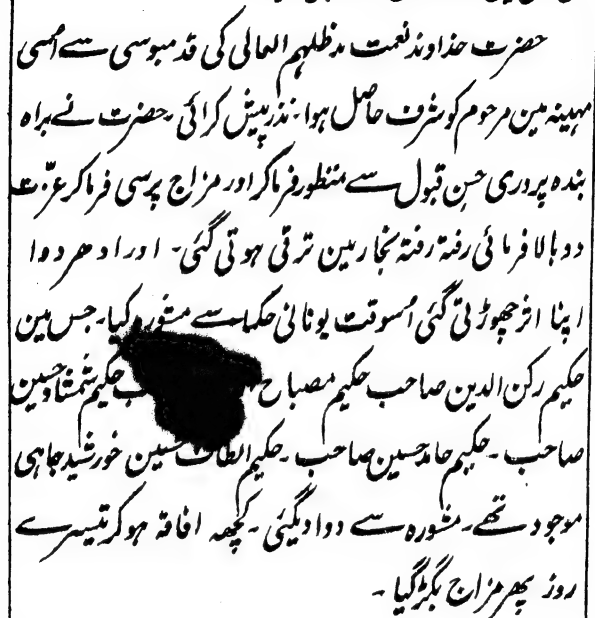 حضرت خداوند نعمت مدظلہم العالی کی قدمبوسی سے اُسی
مہینہ مین مرحوم کو شرف حاصل ہوا۔ نذر پیش کرائی ۔ حضرت نے براہ
بندہ پروری حسن قبول سے منظور فرماکر اور مزاج پرسی فرماکر عزّت
دوبالا فرمائی رفتہ رفتہ بخار مین ترقی ہوتی گئی۔ اور ادھر دوا
اپنا اثر چھوڑتی گئی اُسوقت یونانی حکماء سے مشورہ کیا۔ جس مین
حکیم رکن الدین صاحب حکیم مصباح حکیم شمشاد حسین
صاحب ۔ حکیم حامد حسین صاحب ۔ حکیم الطاف حسین خورشید جاہی
موجود تھے۔ مشورہ سے دوا دیگئی ۔ کچھہ افاقہ ہوکر تیسرے
روز پھر مزاج بگڑ گیا ۔